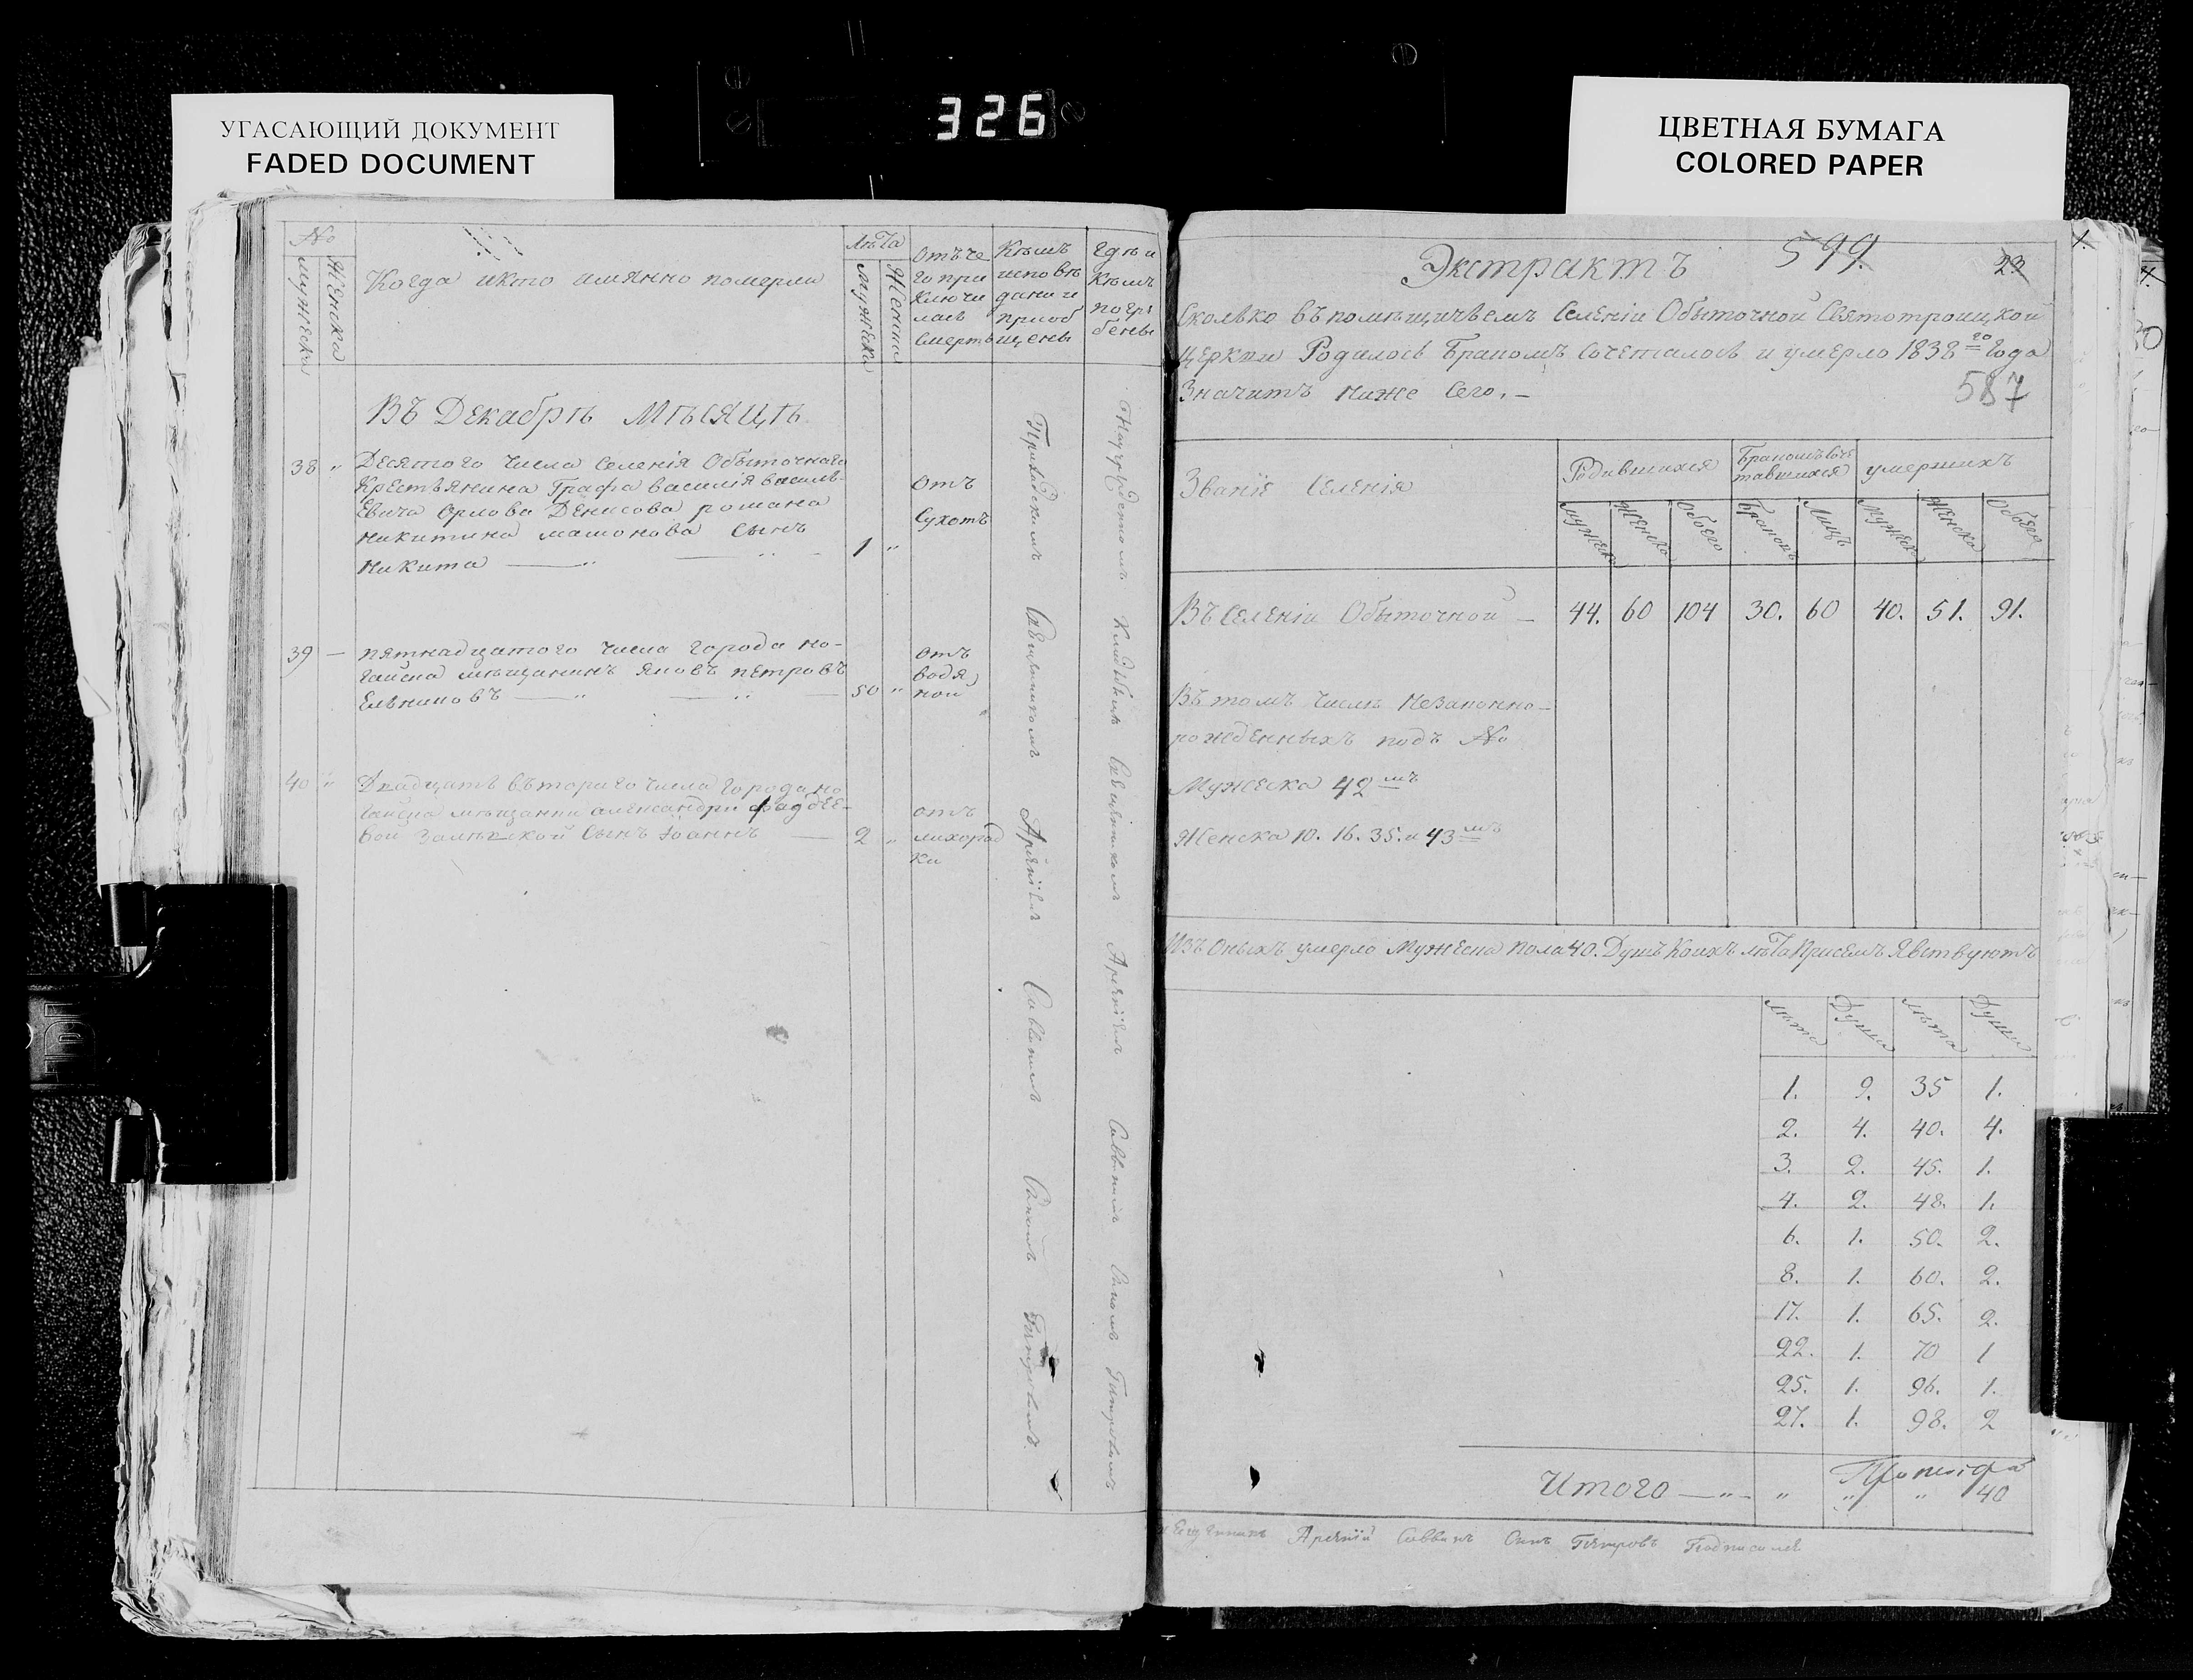 326
УГАСАЮЩИЙ ДОКУМЕНТ
FADED DOCUMENT
ЦВЕТНАЯ БУМАГА
COLORED PAPER
№
мужеска
Женска
Когда и кто имянно померли
лѣта
мужеска
Женска
отъ че
го при
ключи
лась
смерть
Кѣмъ
исповѣ
даны и
приоб
щены
гдѣ и
Кѣмъ
погре
бены
Въ Декабрѣ Мѣсяцѣ
38 "
Десятого числа селенія Обыточнаго
Крестьянина Графа василія василь-
евича Орлова Денисова романа
никитина мамонова сынъ
Никита
1 "
отъ
сухотъ
39 —
пятнадцатого числа города но-
гайска мѣщанинъ яковъ петровъ
Ельниковъ
50 "
отъ
водя
ной
40 "
Двадцать втораго числа города но
гайска мѣщанки александры фаддее-
вой сынъ Іоаннъ
2 "
отъ
лихорад
ки
Приходскимъ Священникомъ Арсеніемъ Саввинымъ Сыномъ Петровымъ
На Кладбищѣ Священникомъ Арсеніемъ Саввинымъ Сыномъ Петровымъ
Экстрактъ
599.
23
Сколько въ помѣщичьемъ Селеніи Обыточной Святотроицкой
Церкви Родилось Бракомъ сочеталось и умерло 1838го Года
Значитъ ниже сего. —
587
Званіе Селенія
Родившихся
Бракомъ соче
тавшихся
умершихъ
мужеска
Женска
Обоего
Браковъ
Лицъ
мужеска
Женска
Обоего
Въ Селеніи Обыточной — 44. 60 104 30. 60 40. 51. 91.
Въ томъ числѣ незаконно-
рожденныхъ подъ №
Мужеска 42мъ
Женска 10. 16. 35. и 43мъ
Изъ оныхъ умерло Мужеска пола 40. Душъ Коихъ лѣта при семъ явствуютъ
лѣта Души лѣта Души
1. 9. 35 1.
2. 4. 40. 4.
3. 2. 45. 1.
4. 2. 48. 1.
6. 1. 50. 2.
8. 1. 60. 2.
17. 1. 65. 2.
22. 1. 70 1
25. 1. 96. 1.
27. 1. 98. 2
Итого — " — " " " 40
Священникъ Арсеній Саввинъ Сынъ Петровъ Подписался